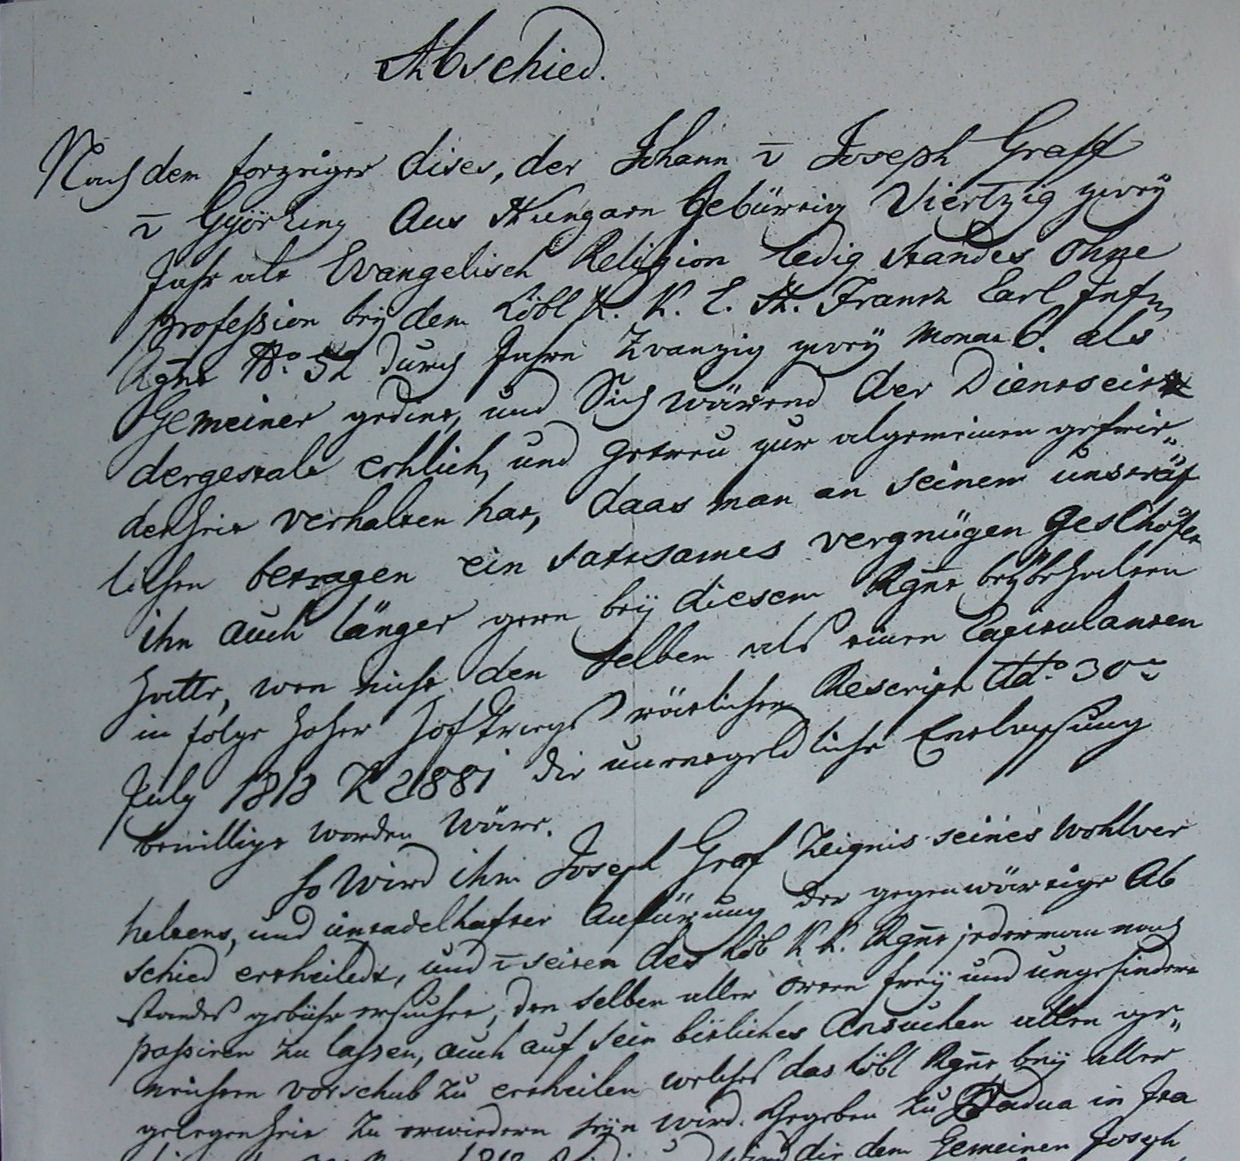 Abschied.
Nach dem forzeiger dises, der Johann v Joseph Graff
v Györkeny Aus Hungarn Gebürtig Viertzig zwey
Jahr alt Evangelisch Religion ledig standes ohne
profession bey dem Löbl K. K. E. H. Frantz Carl Inft
Rgmt No. 52 durch Jahre Zwanzig zwey Monat 6. als
Gemeiner gedint, und Sich wärend der Dienstzeit
dergestalt erhlich, und getreu zur algemeinen zufrie„
denheit verhalten hat, daas man an seinem unsträf
lichen betragen ein sattsames vergnügen Geschöpft
ihn auch länger gern bey diesem Rgmt beybehalten
hatte, wen nicht den selben als einen Capitulanten
in folge hoher Hofkriegs rätlichen Rescript ddto 30
July 1818 K 2881 die unentgeldliche Entlassung
bewilligt worden wäre.
So wird ihm Joseph Graf Zeignis seines wohlver
haltens, und untadelhafter Aufürung der gegenwärtige Ab
schied ertheilet, und v seiten des Löb K K. Rgmt jederman nach
standes gebühr ersuchet, den selben aller orten frey und ungehindert
passiren zu lassen, auch auf sein bitliches Ansuchen allen ge„
neichten vorschub zu ertheilen welches das Löbl Rgmt bey aller
gelegenheit zu erwiedern seyn wird. Gegeben zu Padua in Ita
1818 wird die dem Gemeinen Joseph